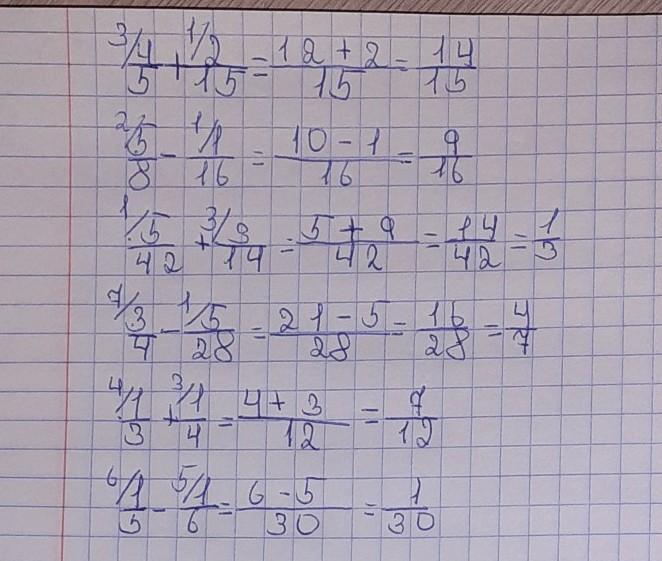 ³⁄4/5 + ¹⁄2/15 = 12 + 2/15 = 14/15
²⁄5/8 - ¹⁄1/16 = 10 - 1/16 = 9/16
¹⁄5/42 + ³⁄3/14 = 5 + 9/42 = 14/42 = 1/3
⁷⁄3/4 - ¹⁄5/28 = 21 - 5/28 = 16/28 = 4/7
⁴⁄1/3 + ³⁄1/4 = 4 + 3/12 = 7/12
⁶⁄1/5 - ⁵⁄1/6 = 6 - 5/30 = 1/30